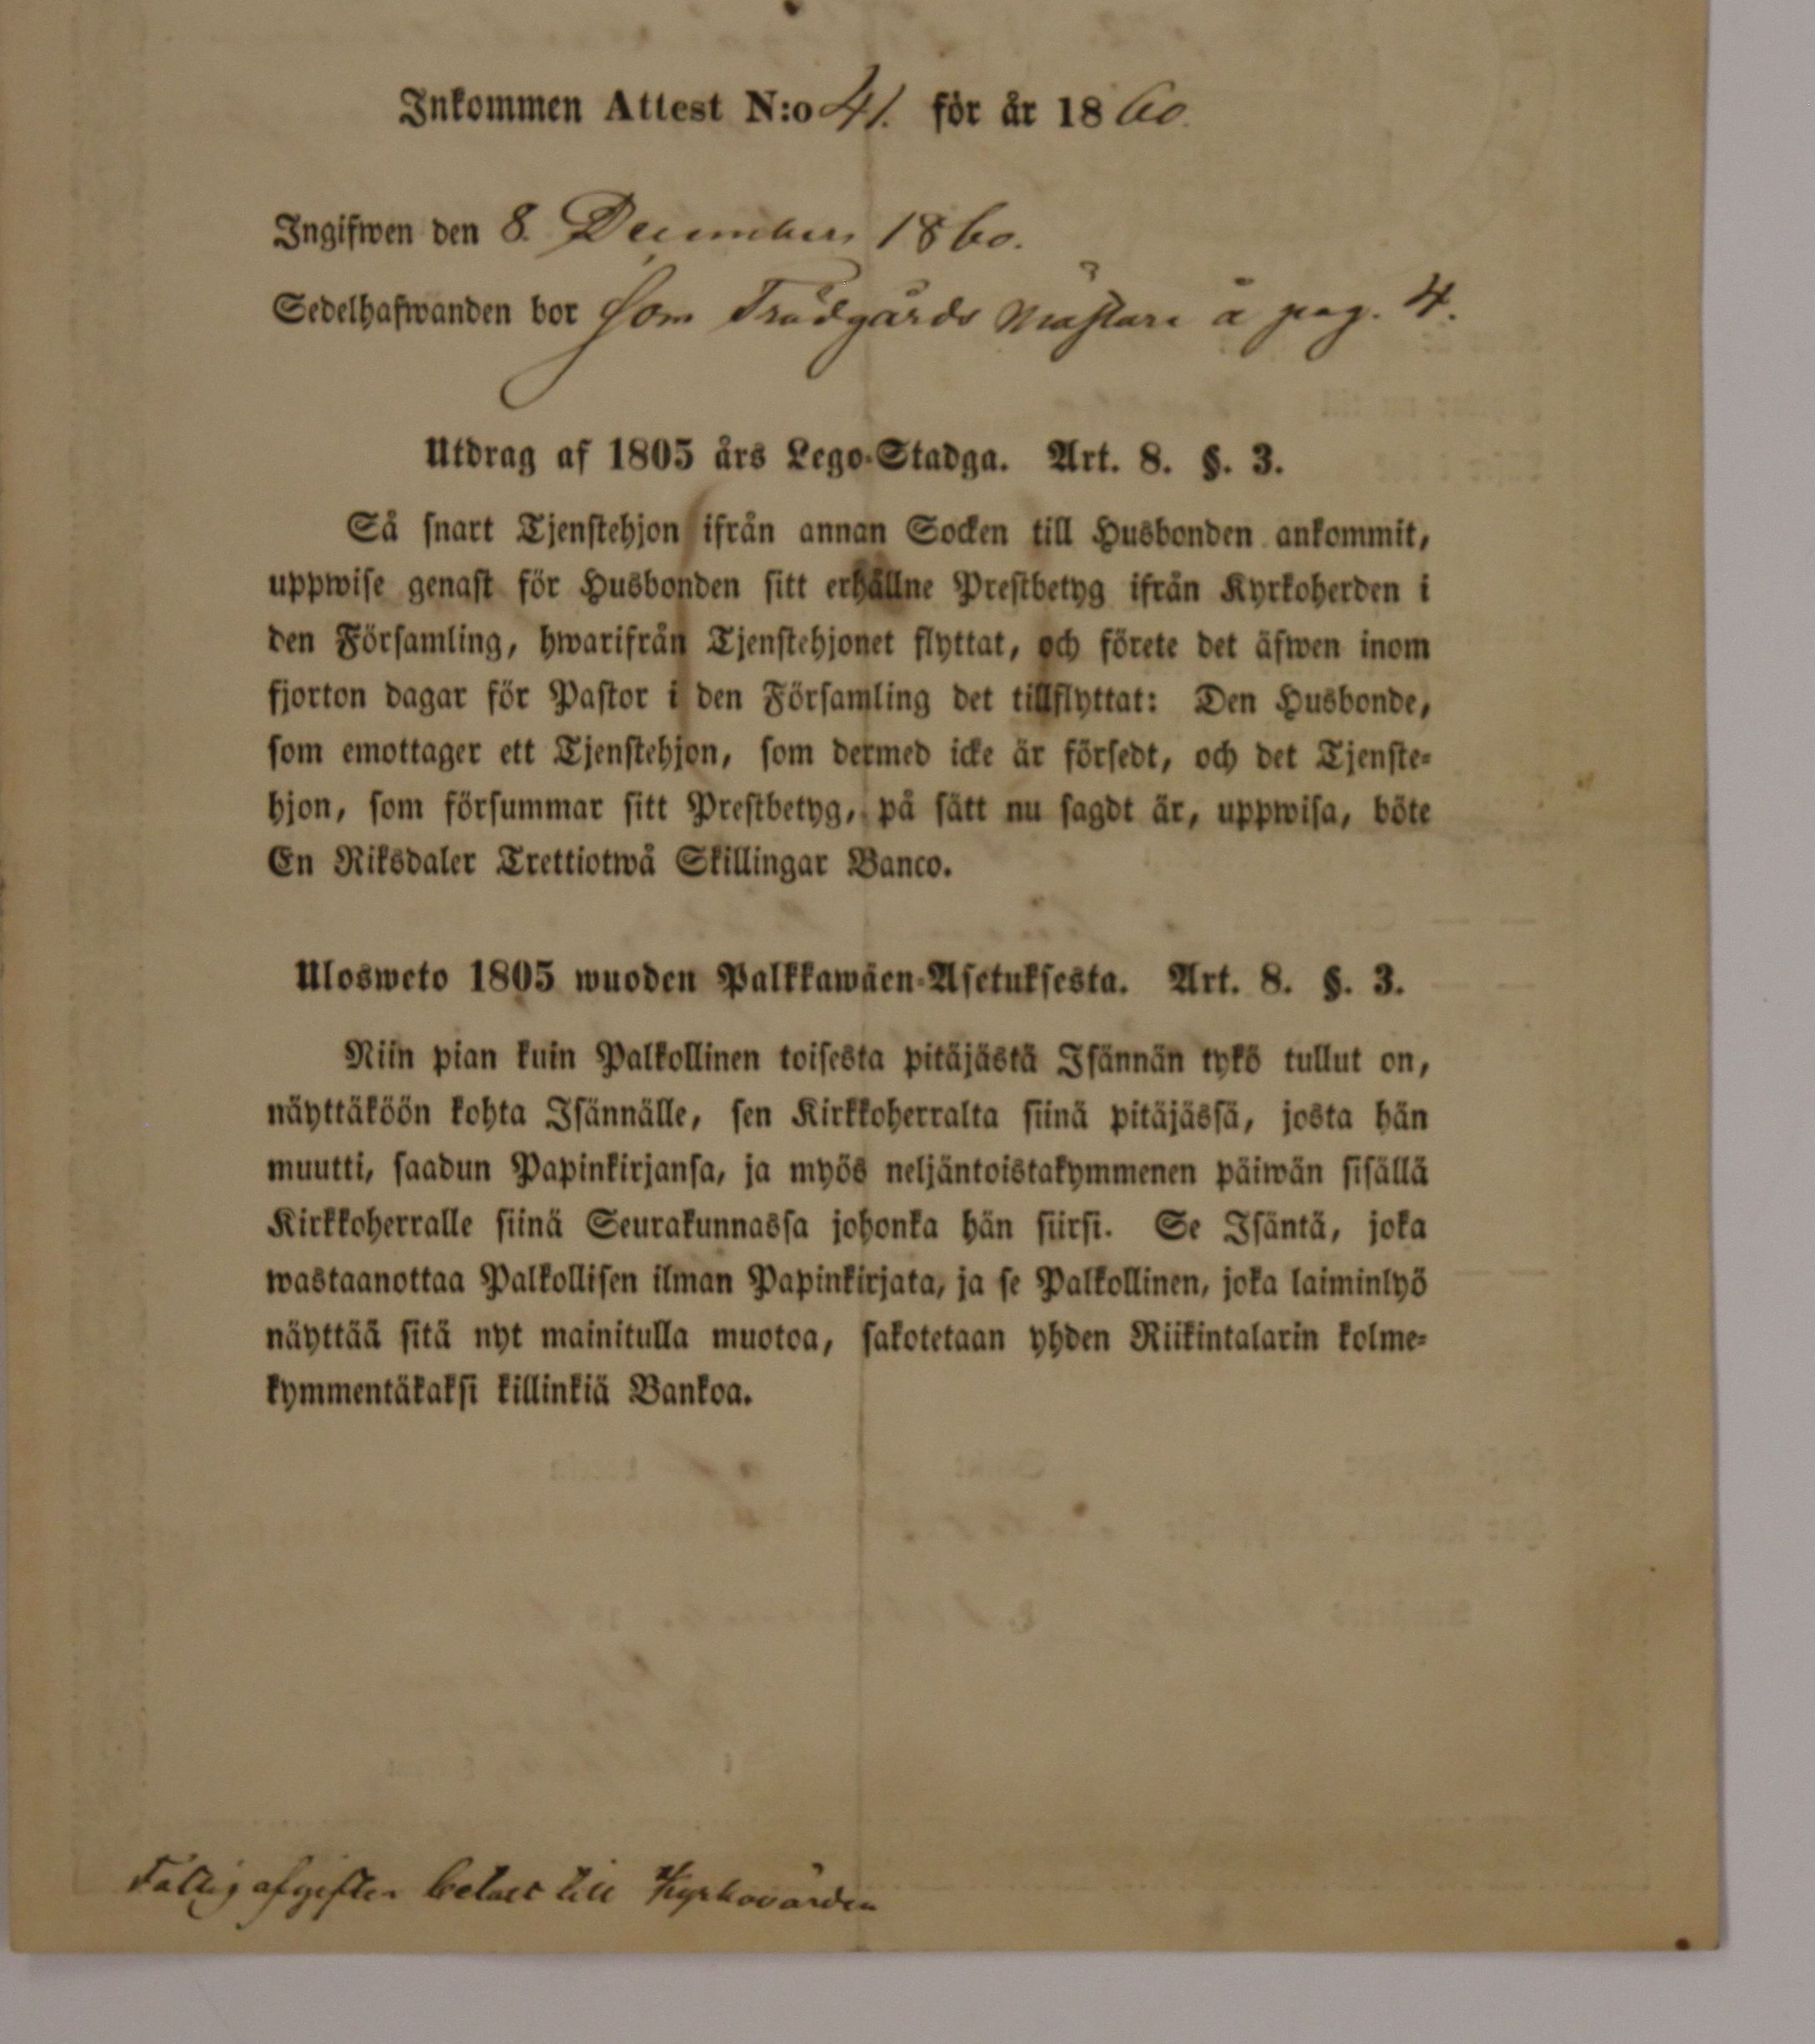 Inkommen Attest N:o 41. för år 1860.
Ingifwen den 8. December 1860.
Sedelhafwanden bor som Trädgårds Mästare å pag. 4.
Utdrag af 1805 års Lego-Stadga. Art. 8. §. 3.
Så snart Tjenstehjon ifrån annan Socken till Husbonden ankommit,
uppwise genast för Husbonden sitt erhållne Prestbetyg ifrån Kyrkoherden i
den Församling, hwarifrån Tjenstehjonet flyttat, och förete det äfwen inom
fjorton dagar för Pastor i den Församling det tillflyttat: Den Husbonde,
som emottager ett Tjenstehjon, som dermed icke är försedt, och det Tjenste-
hjon, som försummar sitt Prestbetyg, på sätt nu sagdt är, uppwisa, böte
En Riksdaler Trettiotwå Skillingar Banco.
Ulosweto 1805 wuoden Palkkawäen-Asetuksesta. Art. 8. §. 3.
Niin pian kuin Palkollinen toisesta pitäjästä Isännän tykö tullut on,
näyttäköön kohta Isännälle, sen Kirkkoherralta siinä pitäjässä, josta hän
muutti, saadun Papinkirjansa, ja myös neljäntoistakymmenen päiwän sisällä
Kirkkoherralle siinä Seurakunnassa johonka hän siirsi. Se Isäntä, joka
wastaanottaa Palkollisen ilman Papinkirjata, ja se Palkollinen, joka laiminlyö
näyttää sitä nyt mainitulla muotoa, sakotetaan yhden Riikintalarin kolme-
kymmentäkaksi killinkiä Bankoa.
Fattigafgiften betalt till Kyrkovärden